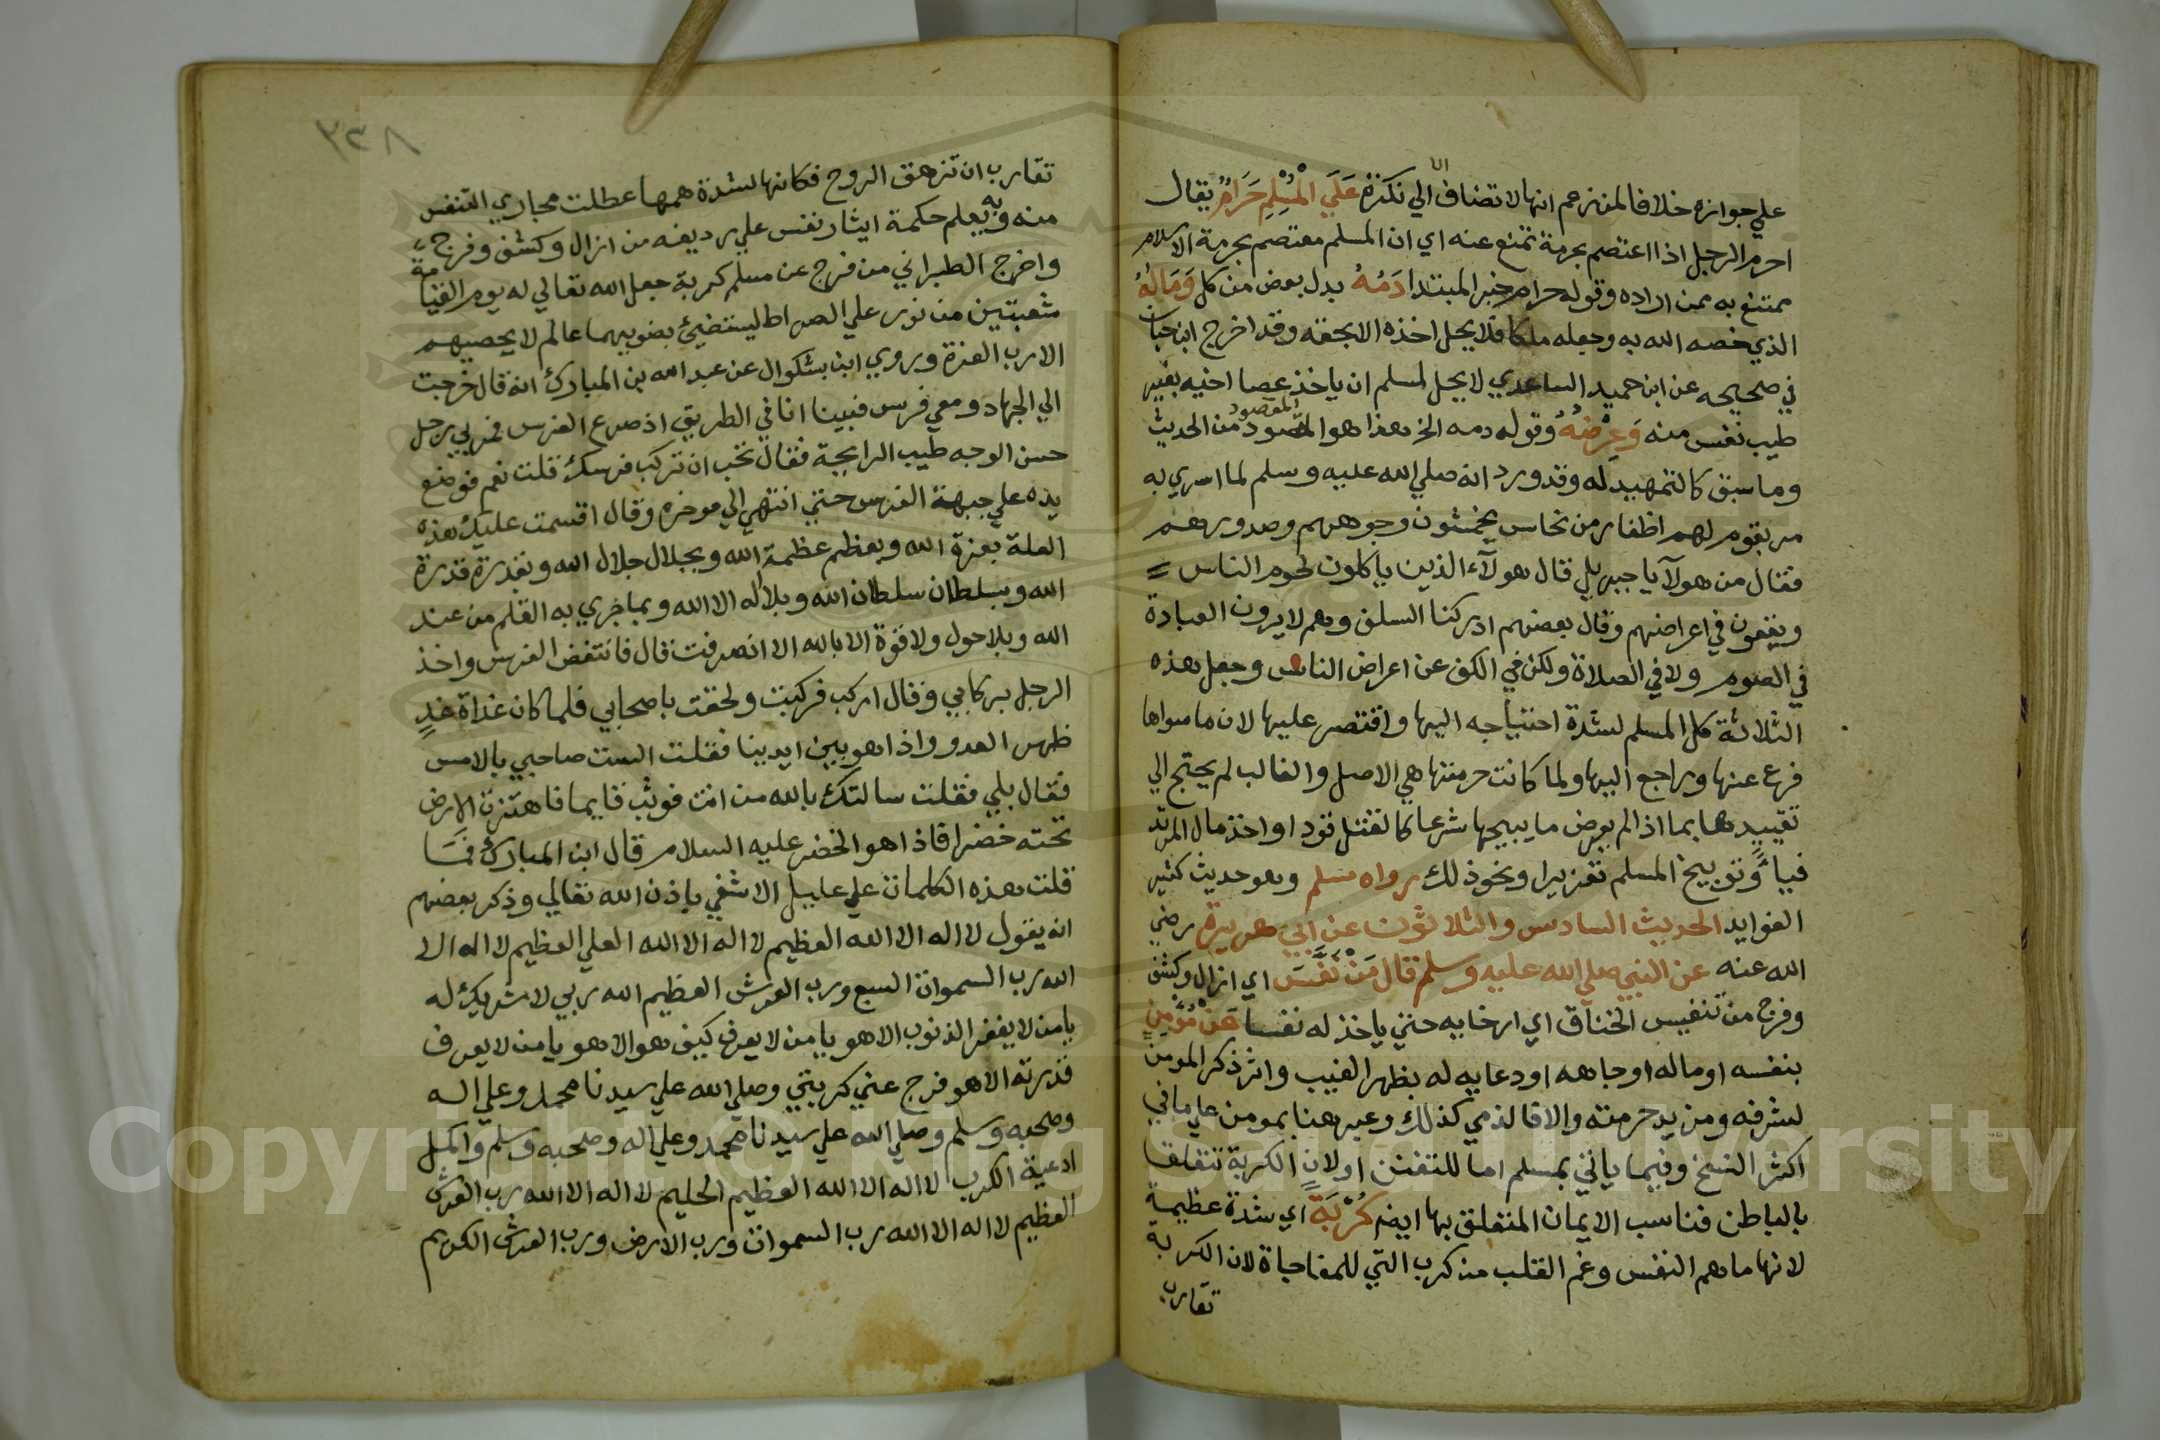 الا
علي جوازه خلافا لمن زعم انها لا تضاف الي نكرة عَلَي الْمُسْلِمِ حَرَامٌ يقال
احرم الرجل اذا اعتصم بحرمة تمنع عنه اي ان المسلم معتصم بحرمة الاسلام
ممتنع به ممن اراده وقوله حرام خبر المبتدا دَمُهُ بدل بعض من كل وَمَالُهُ
الذي خصه الله به وجعله ملكا فلا يحل اخذه الا بحقه وقد اخرج ابن حبان
في صحيحه عن ابن حميد الساعدي لا يحل لمسلم ان ياخذ عصا اخيه بغير
طيب نفس منه وَعِرْضُهُ وقوله دمه الخ هذا هو المقصود من الحديث
وما سبق كالتمهيد له وقد ورد انه صلي الله عليه وسلم لما اسري به
مر بقوم لهم اظفار من نحاس يخمشون وجوههم وصدورهم
فقال من هولآ يا جبريل قال هولآء الذين ياكلون لحوم الناس
ويقعون في اعراضهم وقال بعضهم ادركنا السلف وهم لا يرون العبادة
في الصوم ولا في الصلاة ولكن في الكف عن اعراض الناس وجعل هذه
الثلاثة كل المسلم لشدة احتياجه اليها واقتصر عليها لان ما سواها
فرع عنها وراجع اليها ولما كانت حرمتها هي الاصل والغالب لم يحتج الي
تقييدها بما اذا لم يعرض ما يبيحها شرعا كالقتل قودا واخذ مال المرتد
فيأ وتوبيخ المسلم تعزيرا ونحو ذلك رواه مسلم وهو حديث كثير
الفوايد الحديث السادس والثلاثون عن ابي هريرة رضي
الله عنه عن النبي صلي الله عليه وسلم قال مَنْ نَفَّسَ اي ازال وكشف
وفرج من تنفيس الخناق اي ارخايه حتي ياخذ له نفسا عَنْ مُؤْمِنٍ
بنفسه او ماله او جاهه او دعايه له بظهر الغيب واثر ذكر المومن
لشرفه ومزيد حرمته والا فالذمي كذلك وعبر هنا بمومن علي ما في
اكثر النسخ وفيما ياتي بمسلم اما للتفنن او لان الكربة تتعلق
بالباطن فناسب الايمان المتعلق بها ايضا كُرْبَةً اي شدة عظيمة
لانها ما هم النفس وغم القلب من كرب التي للمفاجاة لان الكربة
تقارب
٣٣٨
تقارب ان تزهق الروح فكانها لشدة همها عطلت مجاري التنفس
منه وبه يعلم حكمة ايثار نفس علي رديفه من ازال وكشف وفرج
واخرج الطبراني من فرج عن مسلم كربة جعل الله تعالي له يوم القيامة
شعبتين من نور علي الصراط ليستضيئ بضوييهما عالم لا يحصيهم
الا رب العزة وروي ابن بشكوال عن عبد الله بن المبارك انه قال خرجت
الي الجهاد ومعي فرس فبينا انا في الطريق اذ صرع الفرس فمر بي رجل
حسن الوجه طيب الرايحة فقال تحب ان تركب فرسك قلت نعم فوضع
يده علي جبهة الفرس حتي انتهي الي موخره وقال اقسمت عليك هذه
العلة بعزة الله وبعظم عظمة الله وبجلال جلال الله وبقدرة قدرة
الله وبسلطان سلطان الله وبلا اله الا الله وبما جري به القلم من عند
الله وبلا حول ولا قوة الا بالله الا انصرفت قال فانتفض الفرس واخذ
الرجل بركابي وقال اركب فركبت ولحقت باصحابي فلما كان غداة غدٍ
ظهر العدو واذا هو بين ايدينا فقلت الست صاحبي بالامس
فقال بلي فقلت سالتك بالله من انت فوثب قايما فاهتزت الارض
تحته خضرا فاذا هو الخضر عليه السلام قال ابن المبارك فما
قلت هذه الكلمات علي عليل الا شفي باذن الله تعالي وذكر بعضهم
انه يقول لا اله الا الله العظيم لا اله الا الله العلي العظيم لا اله الا
الله رب السموات السبع ورب العرش العظيم الله ربي لا شريك له
يا من لا يغفر الذنوب الا هو يا من لا يعرف كيف هو الا هو يا من لا يعرف
قدرته الا هو فرج عني كربتي وصلي الله علي سيدنا محمد وعلي اله
وصحبه وسلم وصلي الله علي سيدنا محمد وعلي اله وصحبه وسلم واكمل
ادعية الكرب لا اله الا الله العظيم الحليم لا اله الا الله رب العرش
العظيم لا اله الا الله رب السموات ورب الارض ورب العرش الكريم